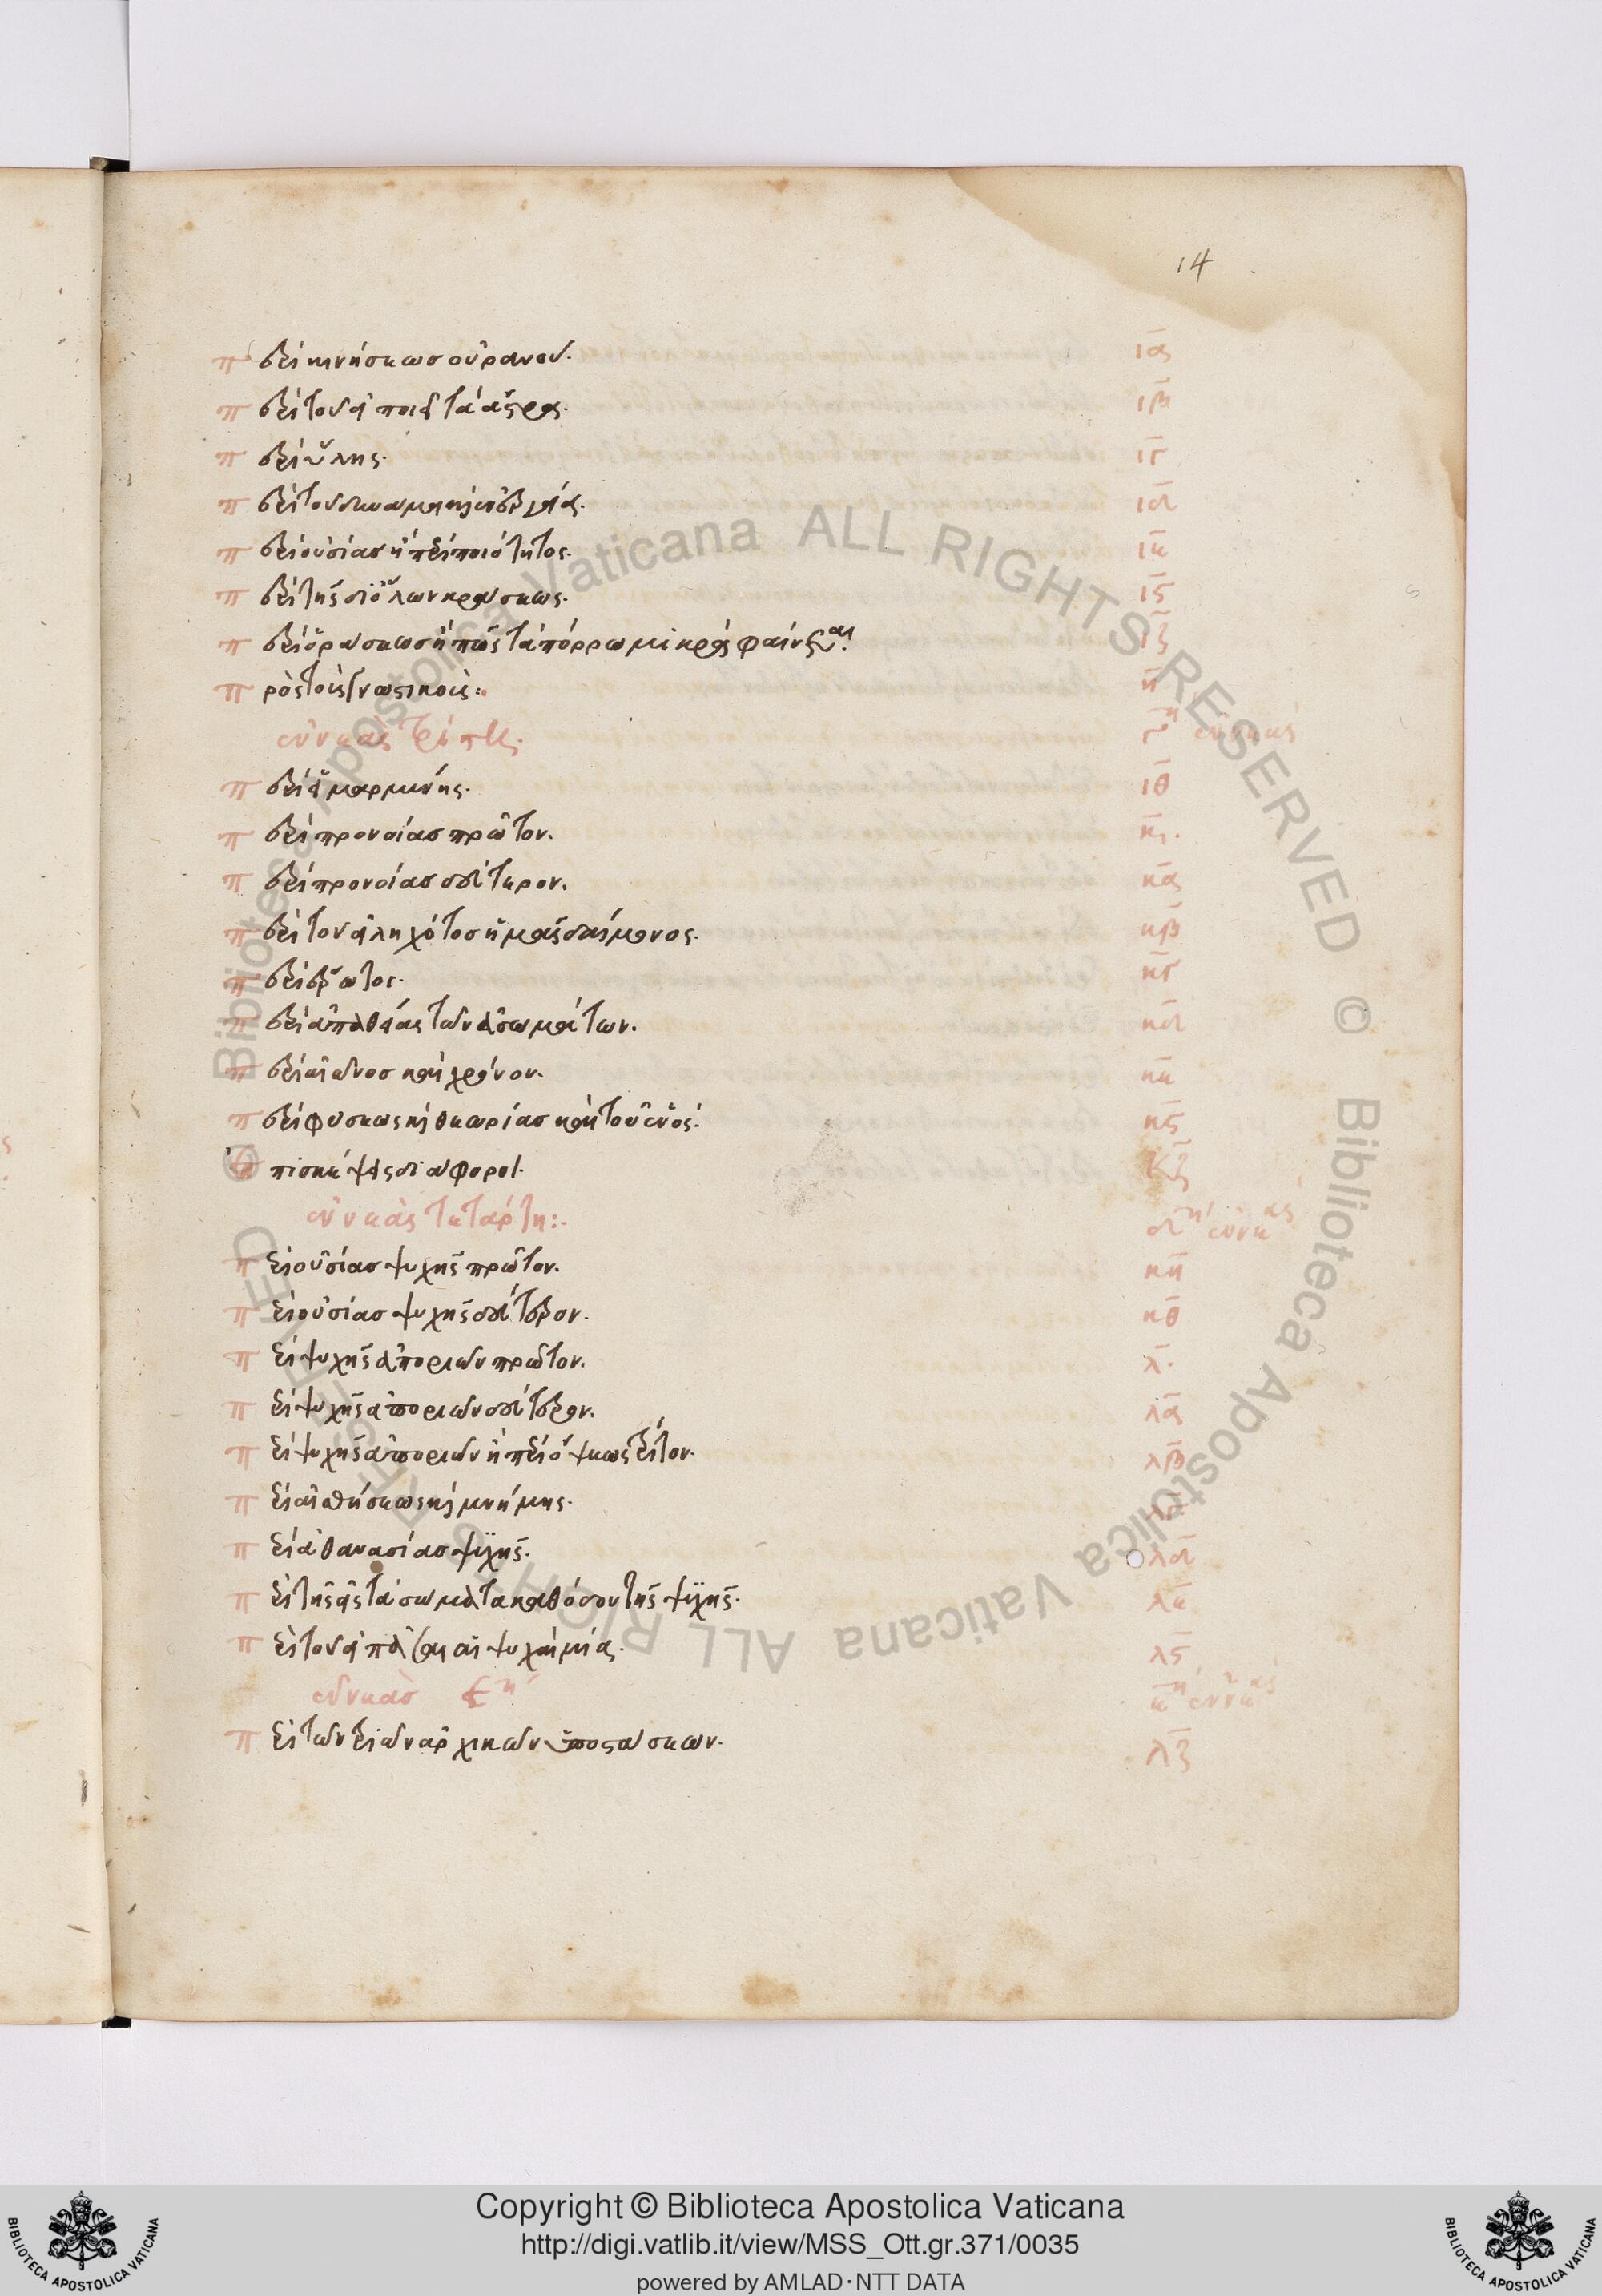 14
περὶ κινήσεως οὐρανοῦ. ια
περὶ τοῦ εἰ ποιεῖ τὰ ἄστρα. ιβ
περὶ ὕλης. ιγ
περὶ τοῦ δυνάμει καὶ ἐνεργεία. ιδ
περὶ οὐσίας ἢ περὶ ποιότητος. ιε
περὶ τῆς δι' ὅλων κράσεως. ις
περὶ ὁράσεως ἢ πῶς τὰ πόρρω μικρὰ φαίνεται. ιζ
πρὸς τοὺς γνωστικούς:. ιη
ἐννεὰς τρίτη. γη ἐννεὰς
περὶ εἱμαρμένης. ιθ
περὶ προνοίας πρῶτον. κ.
περὶ προνοίας δεύτερον. κα
περὶ τοῦ εἰληχότος ἡμᾶς δαίμονος. κβ
περὶ ἔρωτος. κγ
περὶ ἀπαθείας τῶν ἀσωμάτων. κδ
περὶ αἰῶνος καὶ χρόνου. κε
περὶ φύσεως καὶ θεωρίας καὶ τοῦ ἑνός. κς
ἐπισκέψεις διάφοροι. κζ
ἐννεὰς τετάρτη:. δη ἐννεας
περὶ οὐσίας ψυχῆς πρῶτον. κη
περὶ οὐσίας ψυχῆς δεύτερον. κθ
περὶ ψυχῆς ἀποριῶν πρῶτον. λ.
περὶ ψυχῆς ἀποριῶν δεύτερον. λα
περὶ ψυχῆς ἀποριῶν ἢ περὶ ὄψεως τρίτον. λβ
περὶ αἰσθήσεως καὶ μνήμης. λγ
περὶ ἀθανασίας ψυχῆς. λδ
περὶ τῆς εἰς τὰ σώματα καθόδου τῆς ψυχῆς. λε
περὶ τοῦ εἰ πᾶσαι αἱ ψυχαὶ μία. λς
ἐννεὰς εη εη ἐννεας
περὶ τῶν τριῶν ἀρχικῶν ὑποστάσεων. λζ
Copyright © Biblioteca Apostolica Vaticana
http://digi.vatlib.it/view/MSS_Ott.gr.371/0035
powered by AMLAD·NTT DATA
BIBLIOTECA APOSTOLICA VATICANA
BIBLIOTECA APOSTOLICA VATICANA
© Biblioteca Apostolica Vaticana ALL RIGHTS RESERVED © Biblioteca Apostolica Vaticana ALL RIGHTS RESERVED